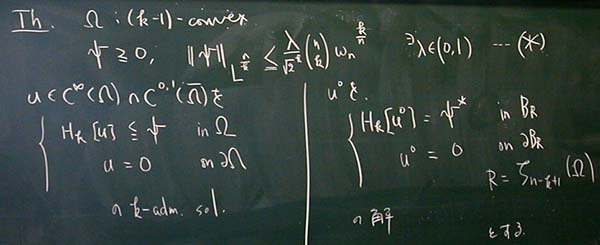 Th. Ω : (k-1)-convex
ψ ≧ 0, ‖ψ‖_{L^{n/k}} ≦ \frac{λ}{\sqrt{2}^k} \binom{n}{k} ω_n^{k/n} ∃λ∈(0,1) ... (*)
u ∈ C^∞(Ω) ∩ C^{0,1}(\overline{Ω}) を
H_k[u] ≦ ψ in Ω
u = 0 on ∂Ω
の k-adm. sol.
u^0 を.
H_k[u^0] = ψ^* in B_R
u^0 = 0 on ∂B_R
R = ζ_{n-k+1}(Ω)
の 解
とする.